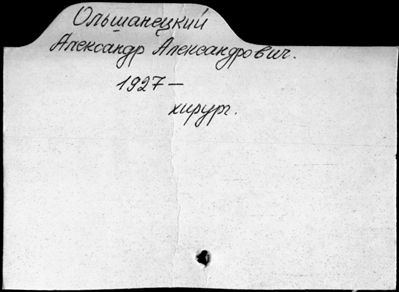 Ольшанецкий
Александр Александрович.
1927—
хирург.